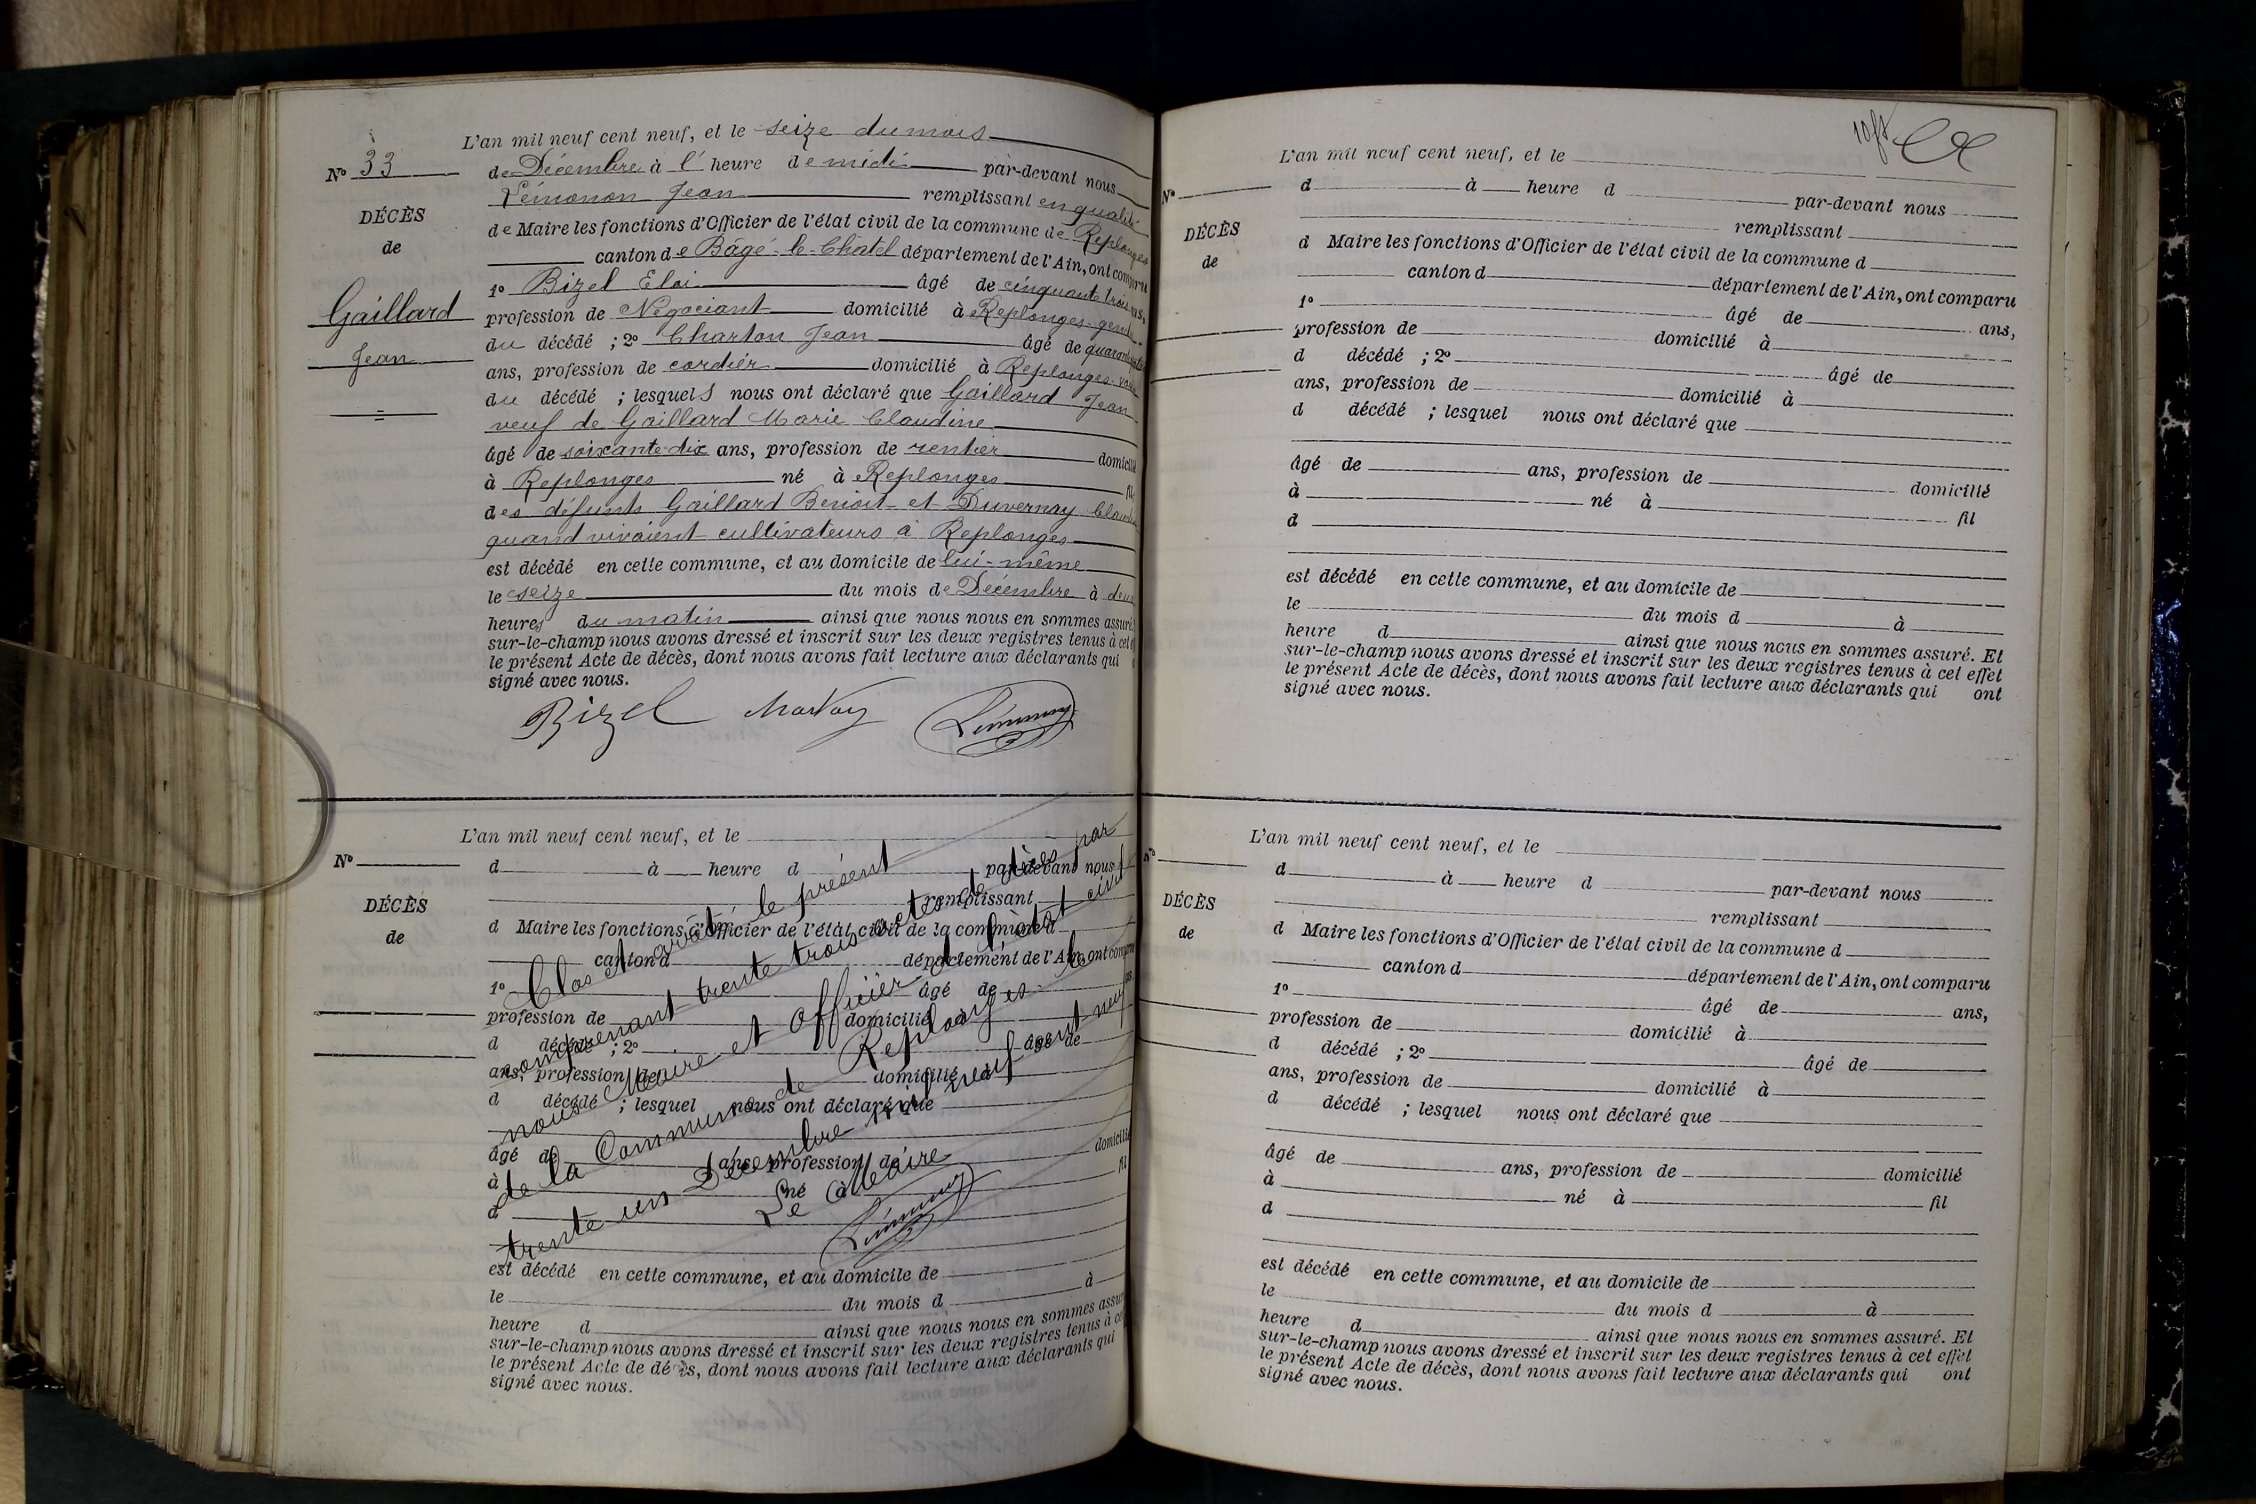 L'an mil neuf cent neuf, et le seize du mois
N° 33
de Décembre à l' heure de midi par-devant nous
Lémonon Jean remplissant en qualité
DÉCÈS
de Maire les fonctions d'Officier de l'état civil de la commune de Replonges
de
canton de Bâgé-le-Châtel département de l'Ain, ont comparu
1° Bizel Eloi âgé de cinquante trois ans,
Gaillard
profession de Négociant domicilié à Replonges gendre
du décédé ; 2° Charton Jean âgé de
Jean
ans, profession de cordier domicilié à Replonges
du décédé ; lesquels nous ont déclaré que Gaillard Jean
veuf de Gaillard Marie Claudine
âgé de soixante-dix ans, profession de rentier domicilié
à Replonges né à Replonges fils
des défunts Gaillard Benoit et Duvernay
quand vivaient cultivateurs à Replonges
est décédé en cette commune, et au domicile de lui-même
le seize du mois de Décembre à deux
heures du matin ainsi que nous nous en sommes assuré
sur-le-champ nous avons dressé et inscrit sur les deux registres tenus à cet
le présent Acte de décès, dont nous avons fait lecture aux déclarants qui
signé avec nous.
Bizel
L'an mil neuf cent neuf, et le
N°
d à heure d par-devant nous
remplissant
DÉCÈS
d Maire les fonctions d'Officier de l'état civil de la commune d
de
canton d département de l'Ain, ont comparu
1° âgé de
profession de domicilié à
d décédé ; 2° âgé de
ans, profession de domicilié à
d décédé ; lesquel nous ont déclaré que
âgé de ans, profession de domicilié
à né à fil
d
est décédé en cette commune, et au domicile de
le du mois d à
heure d ainsi que nous nous en sommes assuré
sur-le-champ nous avons dressé et inscrit sur les deux registres tenus à cet
le présent Acte de décès, dont nous avons fait lecture aux déclarants qui
signé avec nous.
Clos et arrêté le présent
comprenant trente trois actes de décès par
nous Maire et Officier de l'état civil
de la Commune de Replonges le
trente un Décembre mil neuf cent neuf
Le Maire
L'an mil neuf cent neuf, et le
N°
d à heure d par-devant nous
remplissant
DÉCÈS
d Maire les fonctions d'Officier de l'état civil de la commune d
de
canton d département de l'Ain, ont comparu
1° âgé de ans,
profession de domicilié à
d décédé ; 2° âgé de
ans, profession de domicilié à
d décédé ; lesquel nous ont déclaré que
âgé de ans, profession de domicilié
à né à fil
d
est décédé en cette commune, et au domicile de
le du mois d à
heure d ainsi que nous nous en sommes assuré. Et
sur-le-champ nous avons dressé et inscrit sur les deux registres tenus à cet effet
le présent Acte de décès, dont nous avons fait lecture aux déclarants qui ont
signé avec nous.
L'an mil neuf cent neuf, et le
N°
d à heure d par-devant nous
remplissant
DÉCÈS
d Maire les fonctions d'Officier de l'état civil de la commune d
de
canton d département de l'Ain, ont comparu
1° âgé de ans,
profession de domicilié à
d décédé ; 2° âgé de
ans, profession de domicilié à
d décédé ; lesquel nous ont déclaré que
âgé de ans, profession de domicilié
à né à fil
d
est décédé en cette commune, et au domicile de
le du mois d à
heure d ainsi que nous nous en sommes assuré. Et
sur-le-champ nous avons dressé et inscrit sur les deux registres tenus à cet effet
le présent Acte de décès, dont nous avons fait lecture aux déclarants qui ont
signé avec nous.